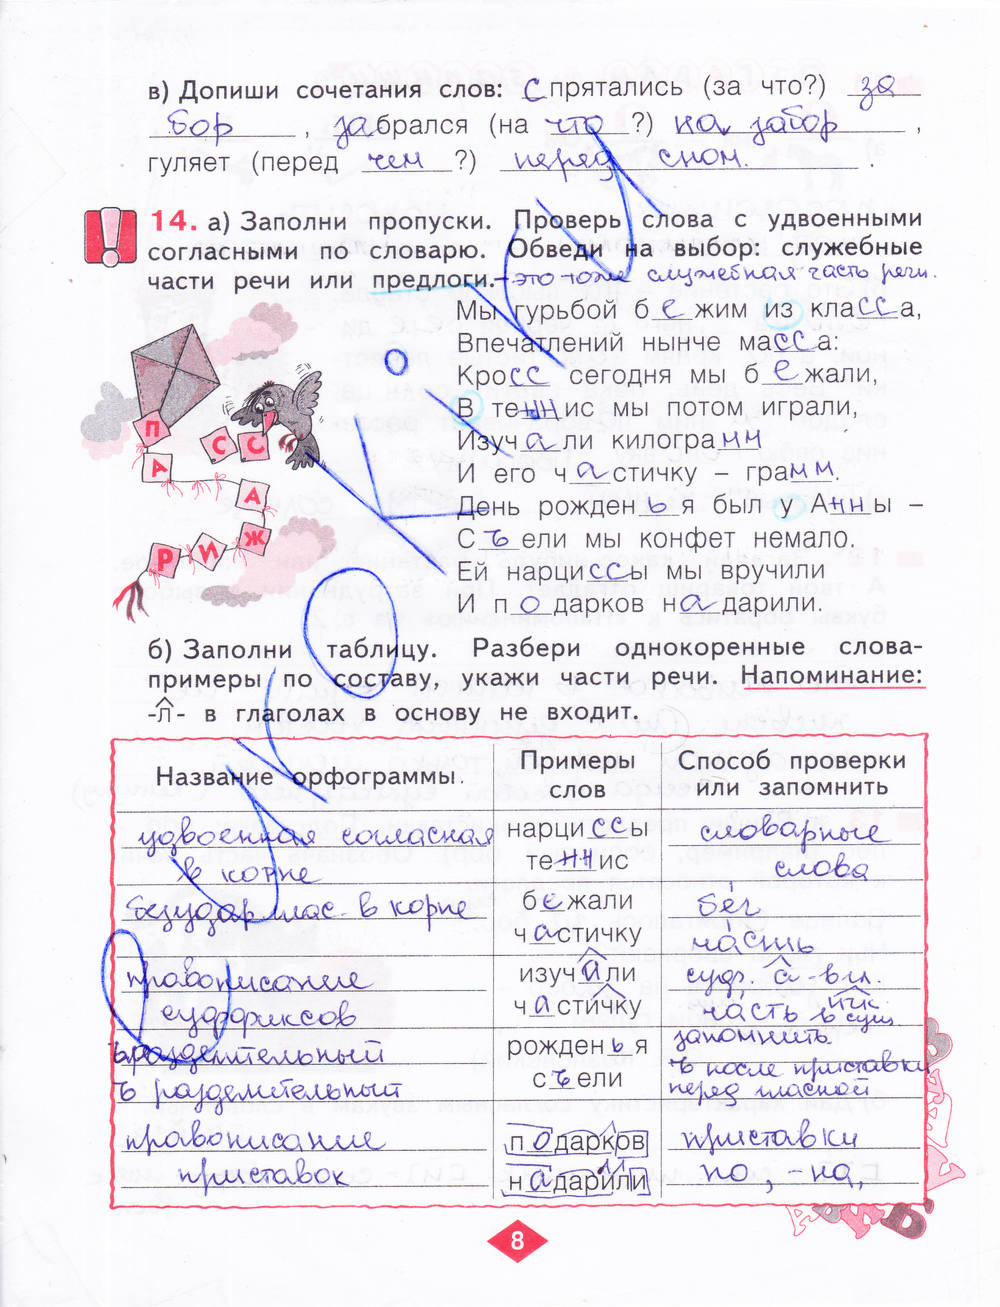 в) Допиши сочетания слов: спрятались (за что?) за
бор, забрался (на что?) на забор,
гуляет (перед чем?) перед сном.
14. а) Заполни пропуски. Проверь слова с удвоенными
согласными по словарю. Обведи на выбор: служебные
части речи или предлоги. - это тоже служебная часть речи.
Мы гурьбой бежим из класса,
Впечатлений нынче масса:
Кросс сегодня мы бежали,
В теннис мы потом играли,
Изучали килограмм
И его частичку – грамм.
День рожденья был у Анны –
Съели мы конфет немало.
Ей нарциссы мы вручили
И подарков надарили.
П
А
С С
А
Р И Ж
б) Заполни таблицу. Разбери однокоренные слова-
примеры по составу, укажи части речи. Напоминание:
-л- в глаголах в основу не входит.
Название орфограммы. Примеры слов Способ проверки или запомнить
удвоенная согласная в корне нарциссы теннис словарные слова
безудар. глас. в корне бежали частичку бег часть
правописание суффиксов изучали частичку суф. а - в гл. часть ичк в сущ
ь разделительный рожденья запомнить
ъ разделительный съели ъ после приставки перед гласной
правописание приставок подарков надарили приставки по, -на,
8